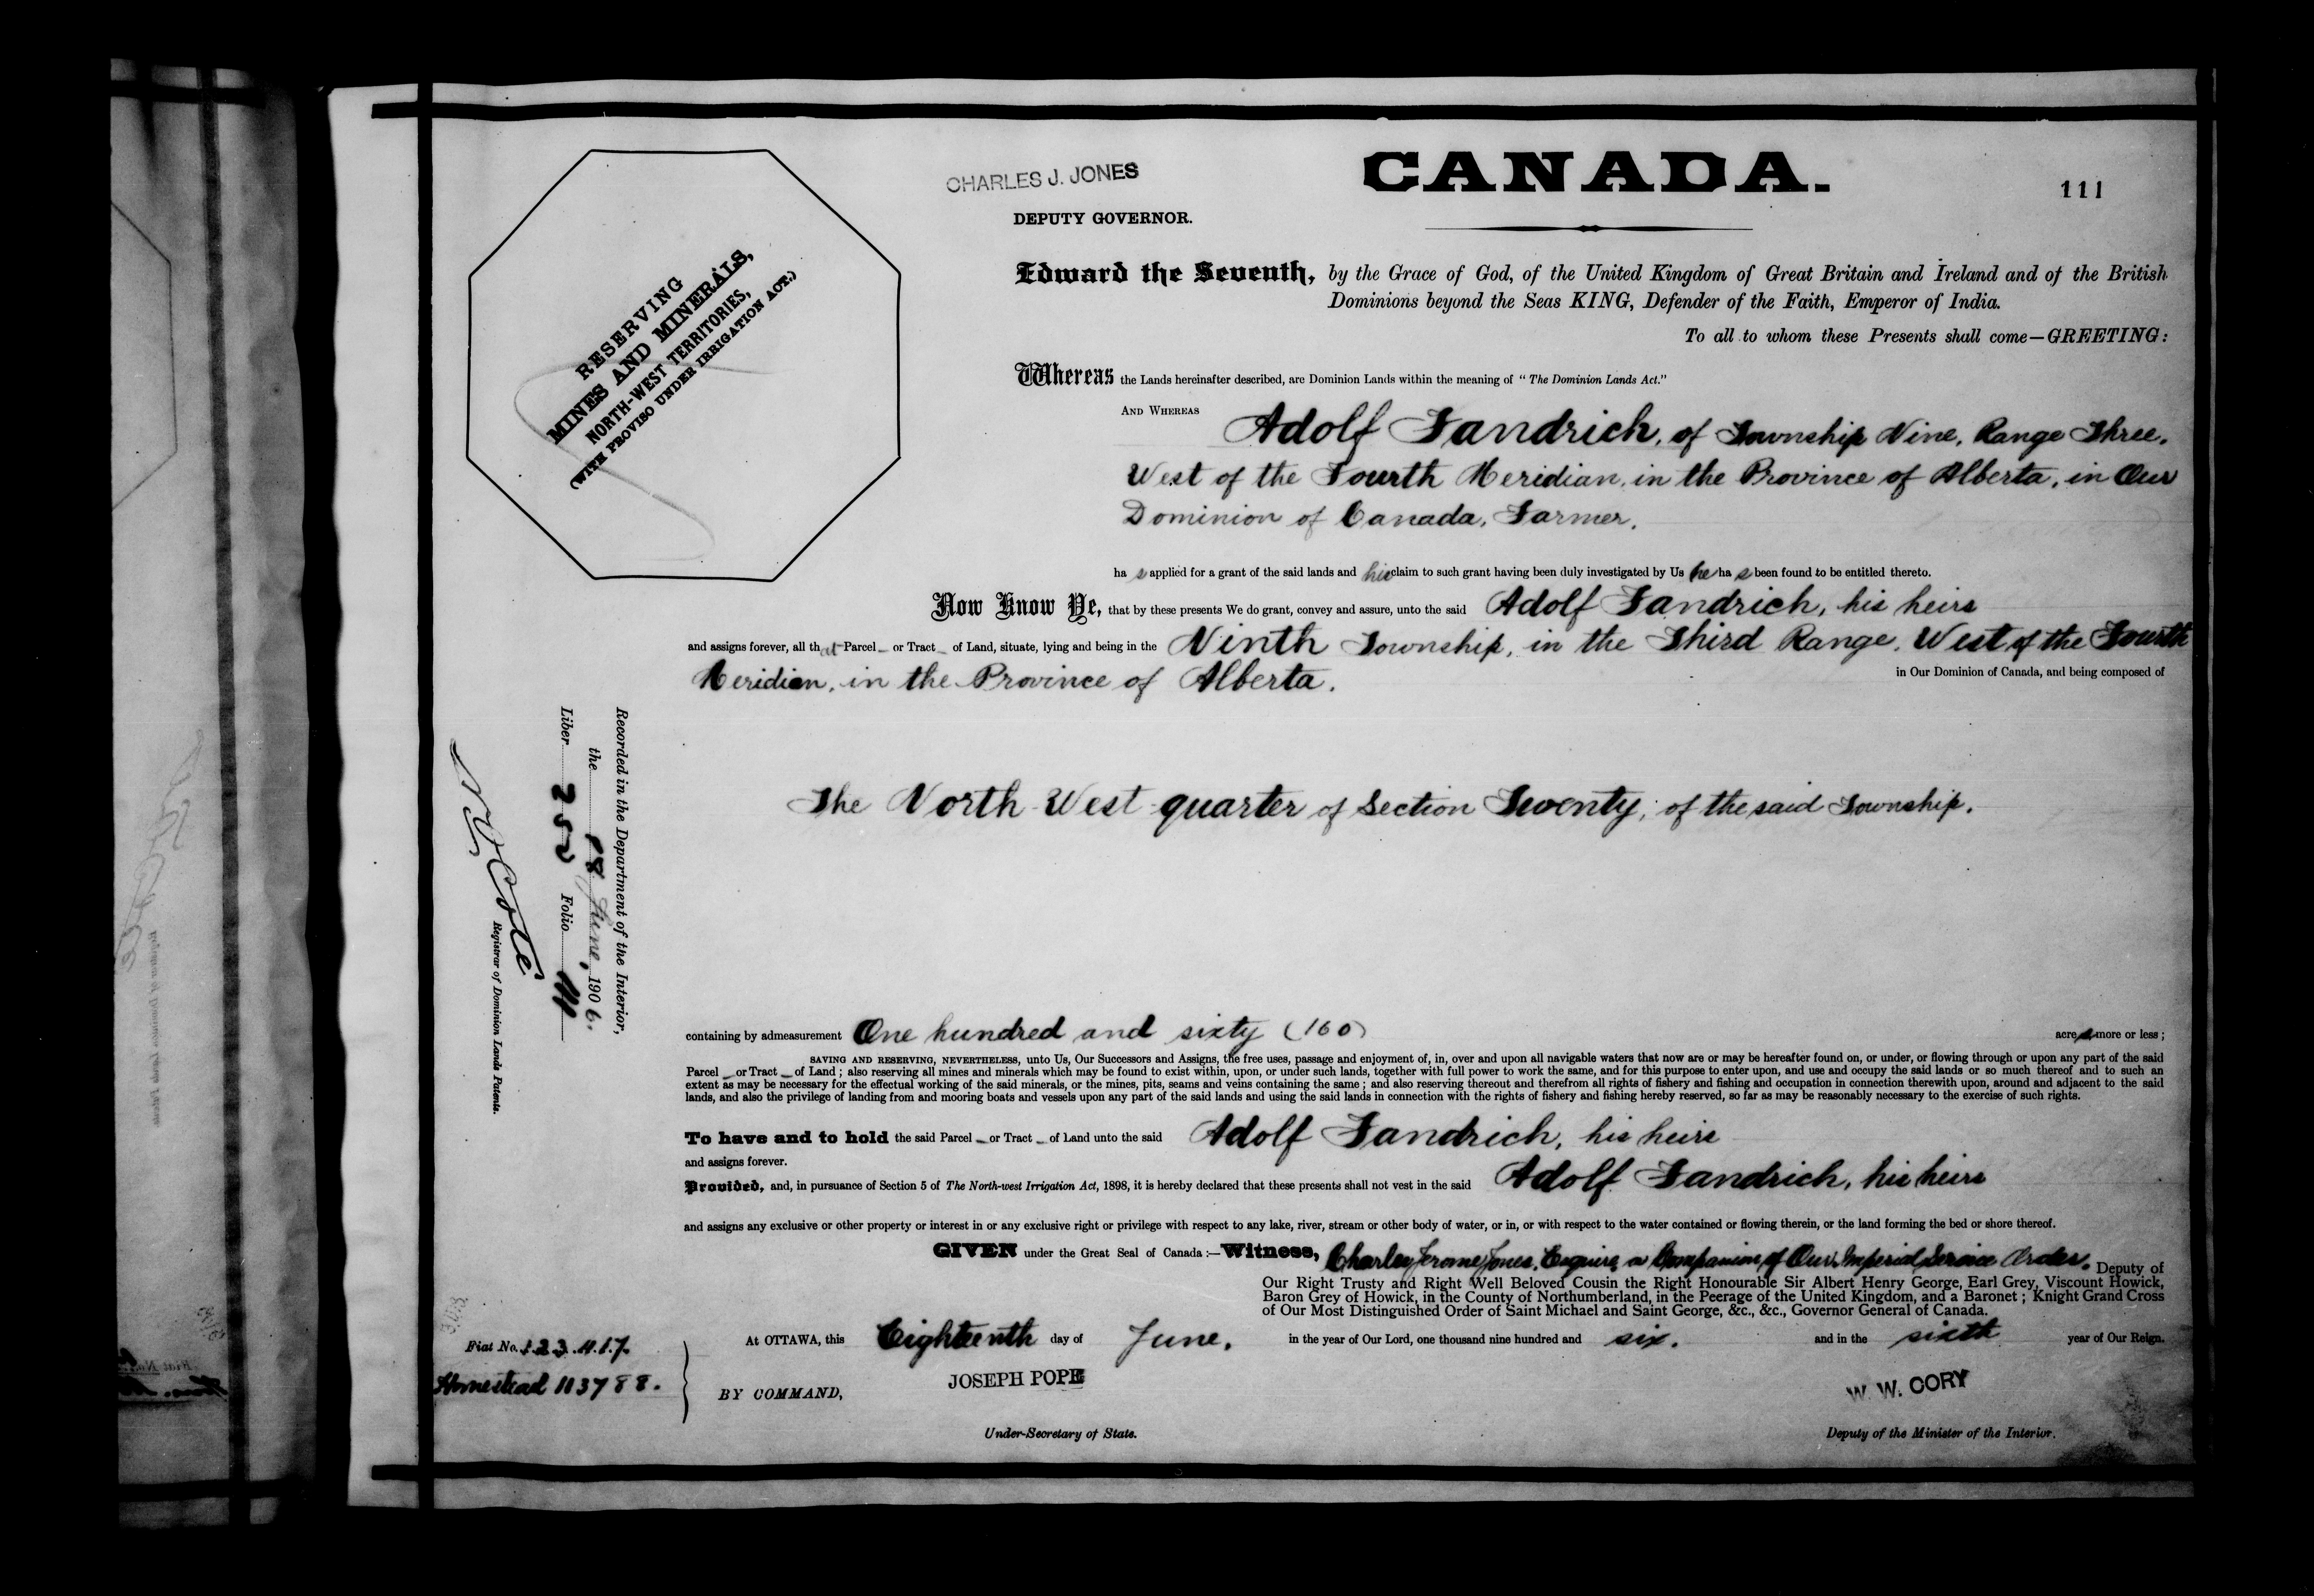 CHARLES J. JONES
DEPUTY GOVERNOR.
CANADA.
111
RESERVING
MINES AND MINERALS,
NORTH-WEST TERRITORIES,
(WITH PROVISO UNDER IRRIGATION ACT.)
Edward the Seventh, by the Grace of God, of the United Kingdom of Great Britain and Ireland and of the British
Dominions beyond the Seas KING, Defender of the Faith, Emperor of India.
To all to whom these Presents shall come—GREETING:
Whereas the Lands hereinafter described, are Dominion Lands within the meaning of "The Dominion Lands Act."
AND WHEREAS Adolf Fandrich, of Township Nine, Range Three,
West of the Fourth Meridian, in the Province of Alberta, in Our
Dominion of Canada, Farmer.
has applied for a grant of the said lands and his claim to such grant having been duly investigated by Us he has been found to be entitled thereto.
Now Know Ye, that by these presents We do grant, convey and assure, unto the said Adolf Fandrich, his heirs
and assigns forever, all that Parcel or Tract of Land, situate, lying and being in the Ninth Township, in the Third Range, West of the Fourth
Meridian, in the Province of Alberta. in Our Dominion of Canada, and being composed of
The North West quarter of Section Twenty, of the said Township.
containing by admeasurement One hundred and sixty (160) acres more or less;
SAVING AND RESERVING, NEVERTHELESS, unto Us, Our Successors and Assigns, the free uses, passage and enjoyment of, in, over and upon all navigable waters that now are or may be hereafter found on, or under, or flowing through or upon any part of the said
Parcel or Tract of Land; also reserving all mines and minerals which may be found to exist within, upon, or under such lands, together with full power to work the same, and for this purpose to enter upon, and use and occupy the said lands or so much thereof and to such an
extent as may be necessary for the effectual working of the said minerals, or the mines, pits, seams and veins containing the same; and also reserving thereout and therefrom all rights of fishery and fishing and occupation in connection therewith upon, around and adjacent to the said
lands, and also the privilege of landing from and mooring boats and vessels upon any part of the said lands and using the said lands in connection with the rights of fishery and fishing hereby reserved, so far as may be reasonably necessary to the exercise of such rights.
To have and to hold the said Parcel or Tract of Land unto the said Adolf Fandrich, his heirs
and assigns forever.
Provided, and, in pursuance of Section 5 of The North-west Irrigation Act, 1898, it is hereby declared that these presents shall not vest in the said Adolf Fandrich, his heirs
and assigns any exclusive or other property or interest in or any exclusive right or privilege with respect to any lake, river, stream or other body of water, or in, or with respect to the water contained or flowing therein, or the land forming the bed or shore thereof.
GIVEN under the Great Seal of Canada:—Witness, Charles Jerome Jones, Esquire, a Companion of Our Imperial Service Order, Deputy of
Our Right Trusty and Right Well Beloved Cousin the Right Honourable Sir Albert Henry George, Earl Grey, Viscount Howick,
Baron Grey of Howick, in the County of Northumberland, in the Peerage of the United Kingdom, and a Baronet; Knight Grand Cross
of Our Most Distinguished Order of Saint Michael and Saint George, &c., &c., Governor General of Canada.
At OTTAWA, this Eighteenth day of June, in the year of Our Lord, one thousand nine hundred and six. and in the sixth year of Our Reign.
BY COMMAND,
JOSEPH POPE
Under-Secretary of State.
W. W. CORY
Deputy of the Minister of the Interior.
Recorded in the Department of the Interior,
the 18 June, 1906.
Liber 252 Folio 111
N O Coté
Registrar of Dominion Lands Patents.
Fiat No. 123417.
Homestead 113788.